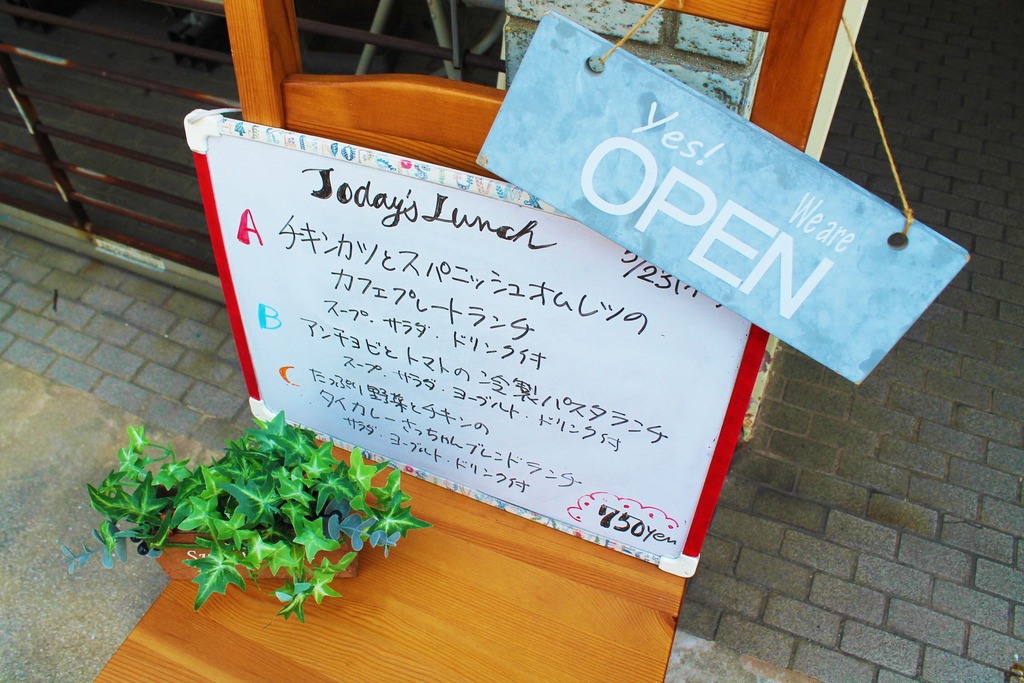 Yes!
We are
OPEN
Today's Lunch
5/23
A チキンカツとスパニッシュオムレツの
カフェプレートランチ
スープ・サラダ・ドリンク付
B アンチョビとトマトの冷製パスタランチ
スープ・サラダ・ヨーグルト・ドリンク付
C たっぷり野菜とチキンの
タイカレーさっちゃんブレンドランチ
サラダ・ヨーグルト・ドリンク付
750yen